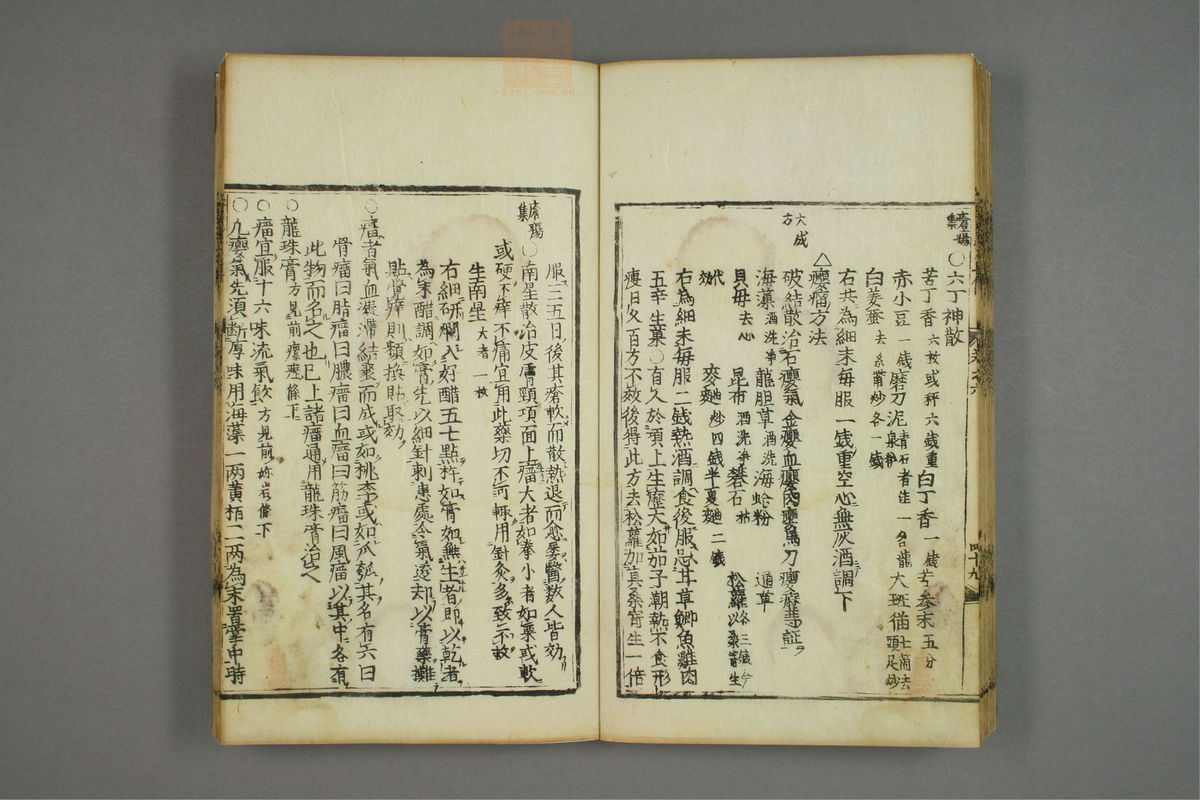 瘡瘍集
○六丁神散
苦丁香六枚或秤六錢重 白丁香一錢 苦参末五分
赤小豆一錢 磨刀泥青石者佳一名龍泉粉 大斑猫七箇去頭足炒
白姜蚕去糸嘴炒各一錢
右共為細末毎服一錢重空心無灰酒調下
△癭瘤方法
大成方
破結散治石癭氣癭血癭肉癭馬刀癭癧等証
海藻酒洗浄 龍胆草酒洗 海蛤粉 通草
貝母去心 昆布酒洗浄 礬石枯 松蘿各三錢今以桑寄生代効
麥麹炒四錢 半夏麹二錢
右為細末毎服二錢熱酒調食後服忌甘草鯽魚雞肉
五辛生菓○有久於項上生癧大如茄子潮熱不食形
瘦日久百方不效後得此方去松蘿加真桑寄生一倍
四十九
服三五日後其瘡軟而散熱退而愈屡醫數人皆効
瘡瘍集
○南星散治皮膚頸項面上瘤大者如拳小者如栗或軟
或硬不痒不痛宜用此藥切不可輒用針灸多致不救
生南星大者一枚
右細研爛入好醋五七點杵如膏如無生者即以乾者
為末醋調如膏先以細針刺患處令氣透却以膏藥攤
貼覺痒則頻換貼取効
○瘤者氣血凝滯結聚而成或如桃李或如瓜瓠其名有六曰
骨瘤曰脂瘤曰膿瘤曰血瘤曰筋瘤曰風瘤以其中各有
此物而名之也已上諸瘤通用龍珠膏治之
○龍珠膏方見前瘰癧條下
○瘤宜服十六味流氣飲方見前妳岩條下
○九癭氣先須斷厚味用海藻一兩黄栢二兩為末置掌中時